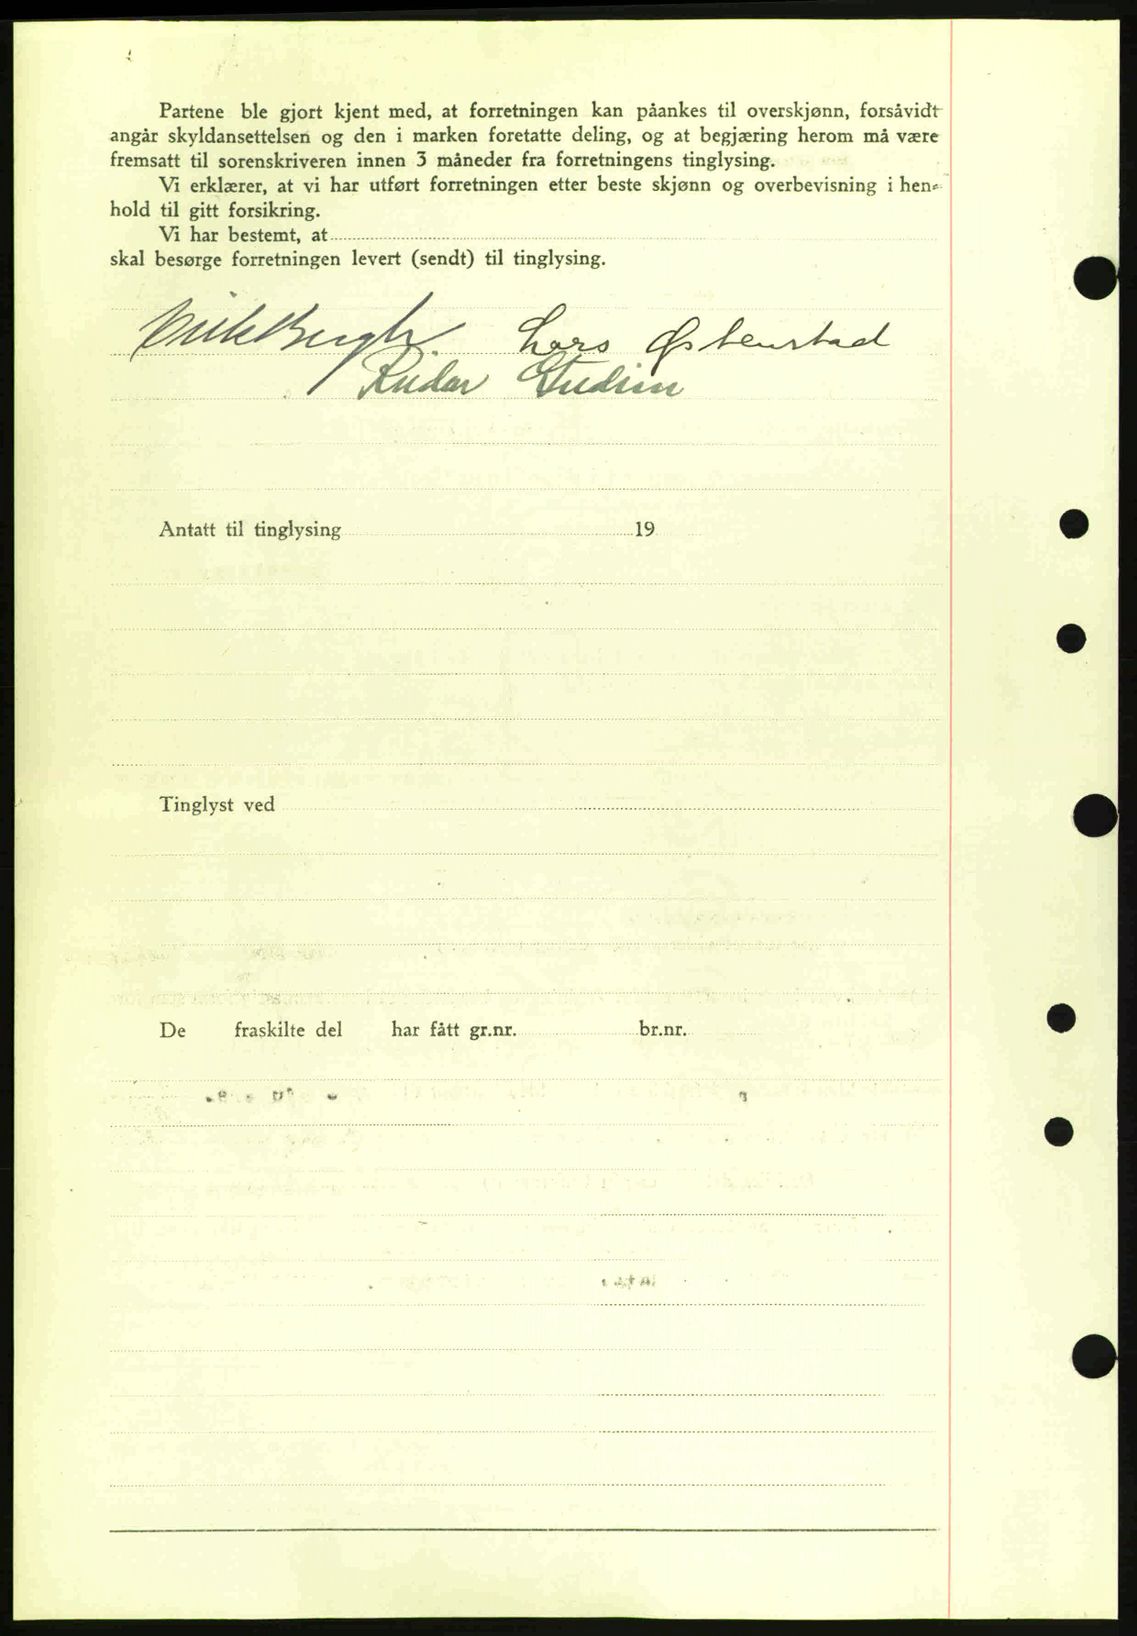 Partene ble gjort kjent med, at forretningen kan påankes til overskjønn, forsåvidt
angår skyldansettelsen og den i marken foretatte deling, og at begjæring herom må være
fremsatt til sorenskriveren innen 3 måneder fra forretningens tinglysing.
Vi erklærer, at vi har utført forretningen etter beste skjønn og overbevisning i hen-
hold til gitt forsikring.
Vi har bestemt, at
skal besørge forretningen levert (sendt) til tinglysing.
Lars Østenstad
Reidar
Antatt til tinglysing 19
Tinglyst ved
De fraskilte del har fått gr.nr. br.nr.